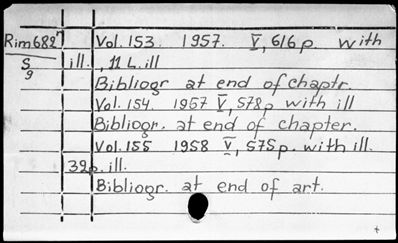 Rim682 Vol. 153. 1957. V, 616 p. with
S ill. , 11 L. ill
9 Bibliogr at end of chaptr.
Vol. 154. 1957 V, 578 p with ill
Bibliogr. at end of chapter.
Vol. 155 1958 V, 575 p. with ill.
39 p. ill.
Bibliogr. at end of art.